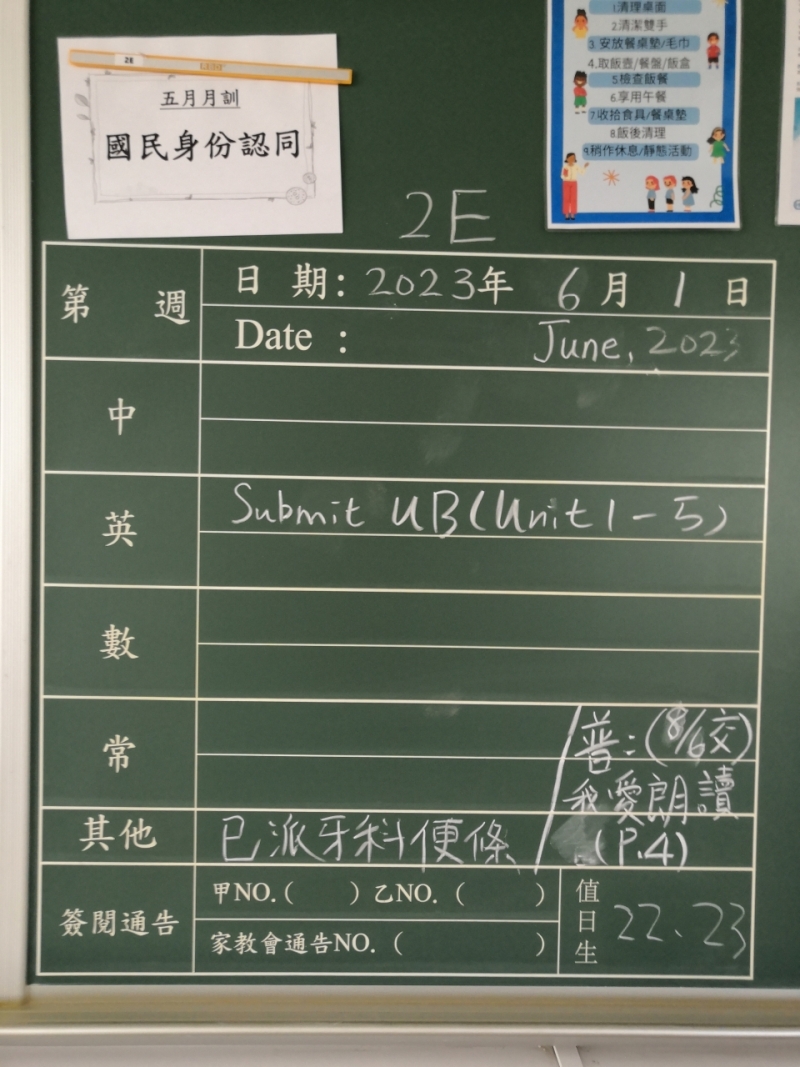 2E
五月月訓
國民身份認同
1清理桌面
2清潔雙手
3.安放餐桌墊/毛巾
4.取飯壺/餐盤/飯盒
5檢查飯餐
6.享用午餐
7.收拾食具/餐桌墊
8.飯後清理
9.稍作休息/靜態活動
2E
第 週
日 期: 2023年 6月 1日
Date : June, 2023
中
英
Submit UB (Unit 1-5)
數
常
普:(8/6交)
我愛朗讀
(P.4)
其他
已派牙科便條
簽閱通告
甲NO.( ) 乙NO. ( )
家教會通告NO. ( )
值日生
22、23